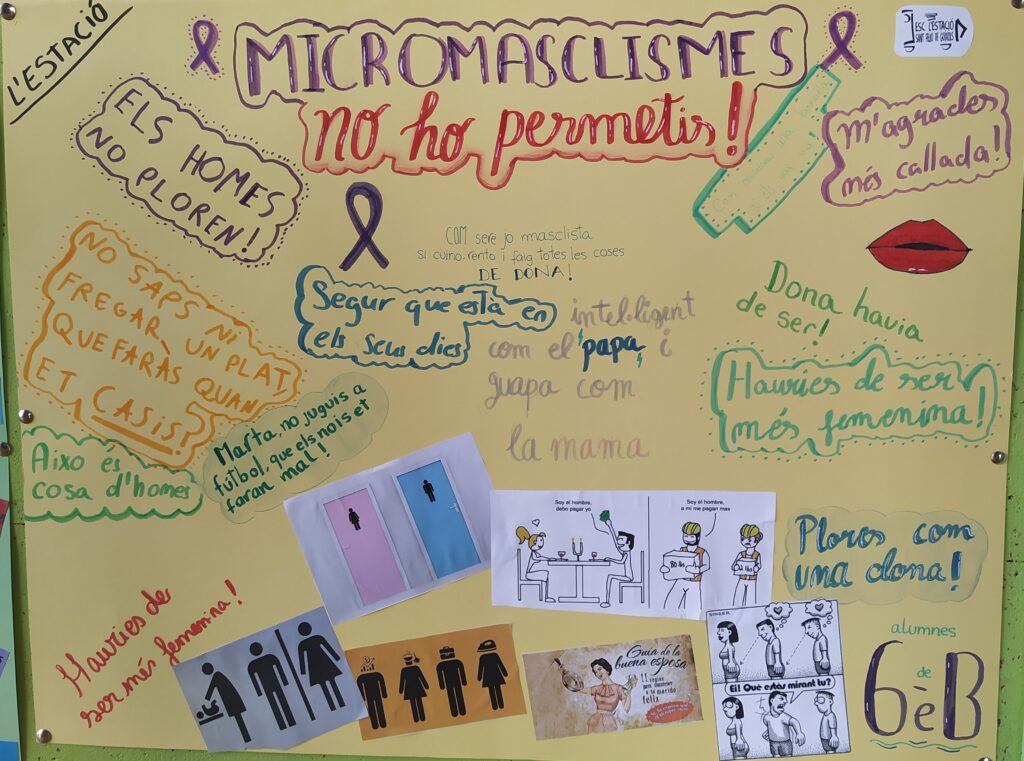 L'ESTACIÓ
MICROMASCLISMES
no ho permetis!
ESC L'ESTACIÓ
SANT FELIU DE GUÍXOLS
ELS HOMES
NO PLOREN!
m'agrades
més callada!
COM sere jo masclista
si cuino, rento i faig totes les coses
DE DONA!
NO SAPS NI
FREGAR UN PLAT,
QUE FARÀS QUAN
ET CASIS!
Segur que està en
els seus dies
intel·ligent
com el "papa" i
guapa com
la mama
Dona havia
de ser!
Hauries de ser
més femenina!
Marta, no juguis a
futbol, que els nois et
faran mal!
Aixo és
cosa d'homes
Soy el hombre,
debo pagar yo
Soy el hombre,
a mi me pagan mas
Plores com
una dona!
Hauries de
ser més femenina!
Guía de la
buena esposa
11 reglas
para mantener
a tu marido
feliz
Ei! Què estàs mirant tu?
alumnes
de
6è B